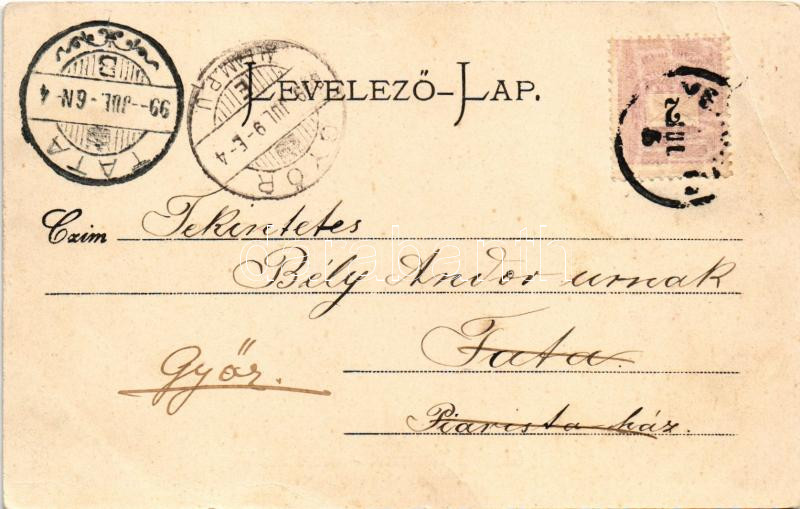 TATA
99-JUL-6N-4
B
GYŐR
JUL 9-E-4
LEVELEZŐ-LAP.
JUL
Czim Tekintetes
darabanth
Bély Andor urnak
Tata.
Győr.
Piarista ház.